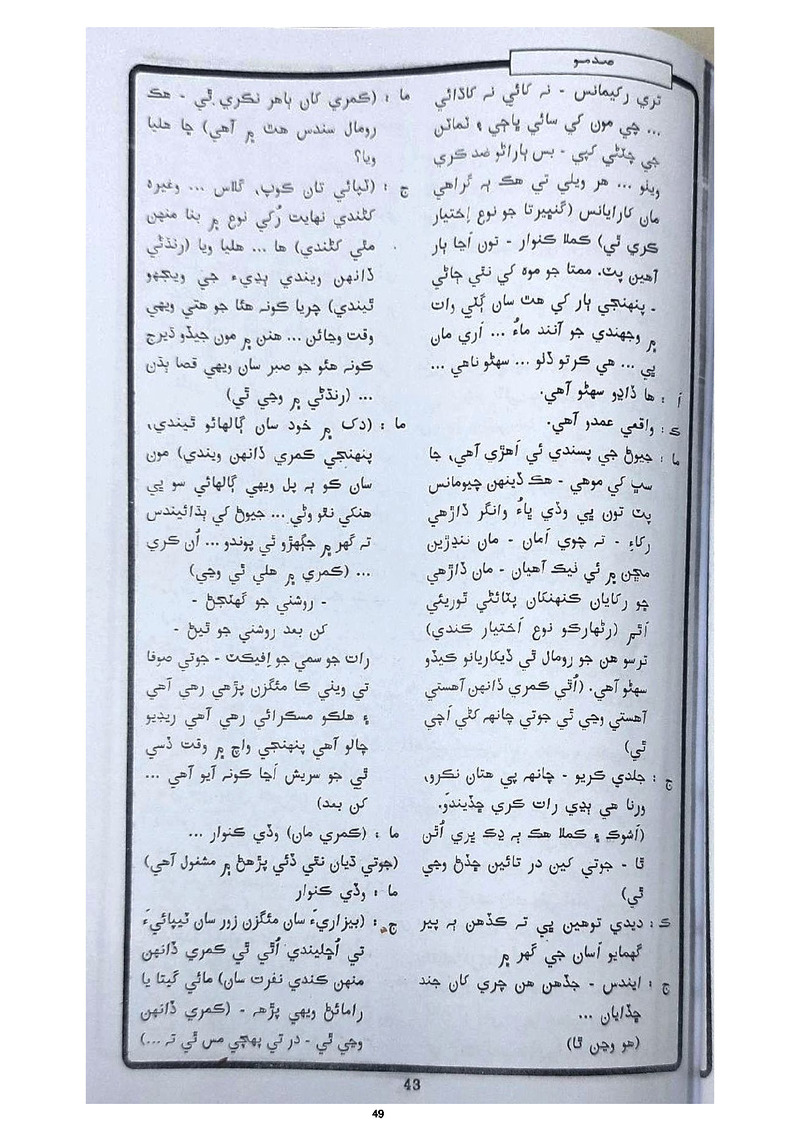 صدمو
تري رکيمانس - نہ کائي نہ کاڌائي
... جي مون کي سائي ڀاڄي ۽ ٽماٽن
جي چٽڻي کپي - بس ٻاراڻو ضد ڪري
ويٺو ... هر ويلي تي هڪ ٻہ گراهي
مان کارايانس (گنڀيرتا جو نوع اِختيار
ڪري ٿي) ڪملا ڪنوار - تون اڃا ٻار
آهين پٽ. ممتا جو موهہ کي نٿي ڄاڻي
- پنهنجي ٻار کي هٿ سان ڳٽي وات
۾ وجهندي جو آنند ماءُ ... اَري مان
ڀي ... هي ڪرتو ڏلو ... سهڻو ناهي ...
اَ : ها ڏاڍو سهڻو آهي.
ڪ : واقعي عمدو آهي.
ما : جيوڻ جي پسندي ئي اَهڙي آهي، جا
سڀ کي موهي - هڪ ڏينهن چيومانس
پٽ تون ڀي وڏي ڀاءُ وانگر ڏاڙهي
رکاءِ - تہ چوي اَمان - مان ننڍڙين
مڇن ۾ ئي ٺيڪ آهيان - مان ڏاڙهي
ڇو رکايان ڪنهنکان پٽائڻي ٿوريئي
اَٿم (رٺهارڪو نوع اَختيار ڪندي)
ترسو هن جو رومال ٿي ڏيکاريانو ڪيڏو
سهڻو آهي. (اُٿي ڪمري ڏانهن آهستي
آهستي وڃي ٿي جوتي چانهہ کڻي اَچي
ٿي)
ج : جلدي ڪريو - چانهہ پي هتان نڪرو،
ورنا هي ٻڍي رات ڪري ڇڏيندوَ.
(اَشوڪ ۽ ڪملا هڪ ٻہ ڍڪ ڀري اُٿن
ٿا - جوتي کين در تائين ڇڏڻ وڃي
ٿي)
ڪ : ديدي توهين ڀي تہ ڪڏهن ٻہ پير
گهمايو اَسان جي گهر ۾
ج : ايندس - جڏهن هن چري کان جند
ڇڏايان ...
(هو وڃن ٿا)
ما : (ڪمري کان ٻاهر نڪري ٿي - هڪ
رومال سندس هٿ ۾ آهي) ڇا هليا
ويا؟
ج : (ٽپائي تان ڪوپ، گلاس ... وغيره
کڻندي نهايت رُکي نوع ۾ بنا منهن
مٿي کڻندي) ها ... هليا ويا (رنڌڻي
ڏانهن ويندي ٻڍيءَ جي ويجهو
ٿيندي) چريا ڪونہ هئا جو هتي ويهي
وقت وڃائن ... هنن ۾ مون جيڏو ڌيرج
ڪونہ هئو جو صبر سان ويهي قصا ٻڌن
... (رنڌڻي ۾ وڃي ٿي)
ما : (دک ۾ خود سان ڳالهائو ٿيندي،
پنهنجي ڪمري ڏانهن ويندي) مون
سان ڪو ٻہ پل ويهي ڳالهائي سو ڀي
هنکي نٿو وڻي ... جيوڻ کي ٻڌائيندس
تہ گهر ۾ جڳهڙو ئي پوندو ... اُن ڪري
... (ڪمري ۾ هلي ٿي وڃي)
- روشني جو گهٽجڻ -
کن بعد روشني جو ٿيڻ -
رات جو سمي جو اِفيڪٽ - جوتي صوفا
تي ويٺي ڪا مئگزن پڙهي رهي آهي
۽ هلڪو مسڪرائي رهي آهي ريڊيو
چالو آهي پنهنجي واچ ۾ وقت ڏسي
ٿي جو سريش اَڃا ڪونہ آيو آهي ...
کن بعد)
ما : (ڪمري مان) وڏي ڪنوار ...
(جوتي ڌيان نٿي ڏئي پڙهڻ ۾ مشغول آهي)
ما : وڏي ڪنوار
ج : (بيزاريءَ سان مئگزن زور سان ٽيپائيءَ
تي اُڇليندي اُٿي ٿي ڪمري ڏانهن
منهن ڪندي نفرت سان) مائي گيتا يا
رامائڻ ويهي پڙهہ - (ڪمري ڏانهن
وڃي ٿي - در تي پهچي مس ٿي تہ ...)
43
49